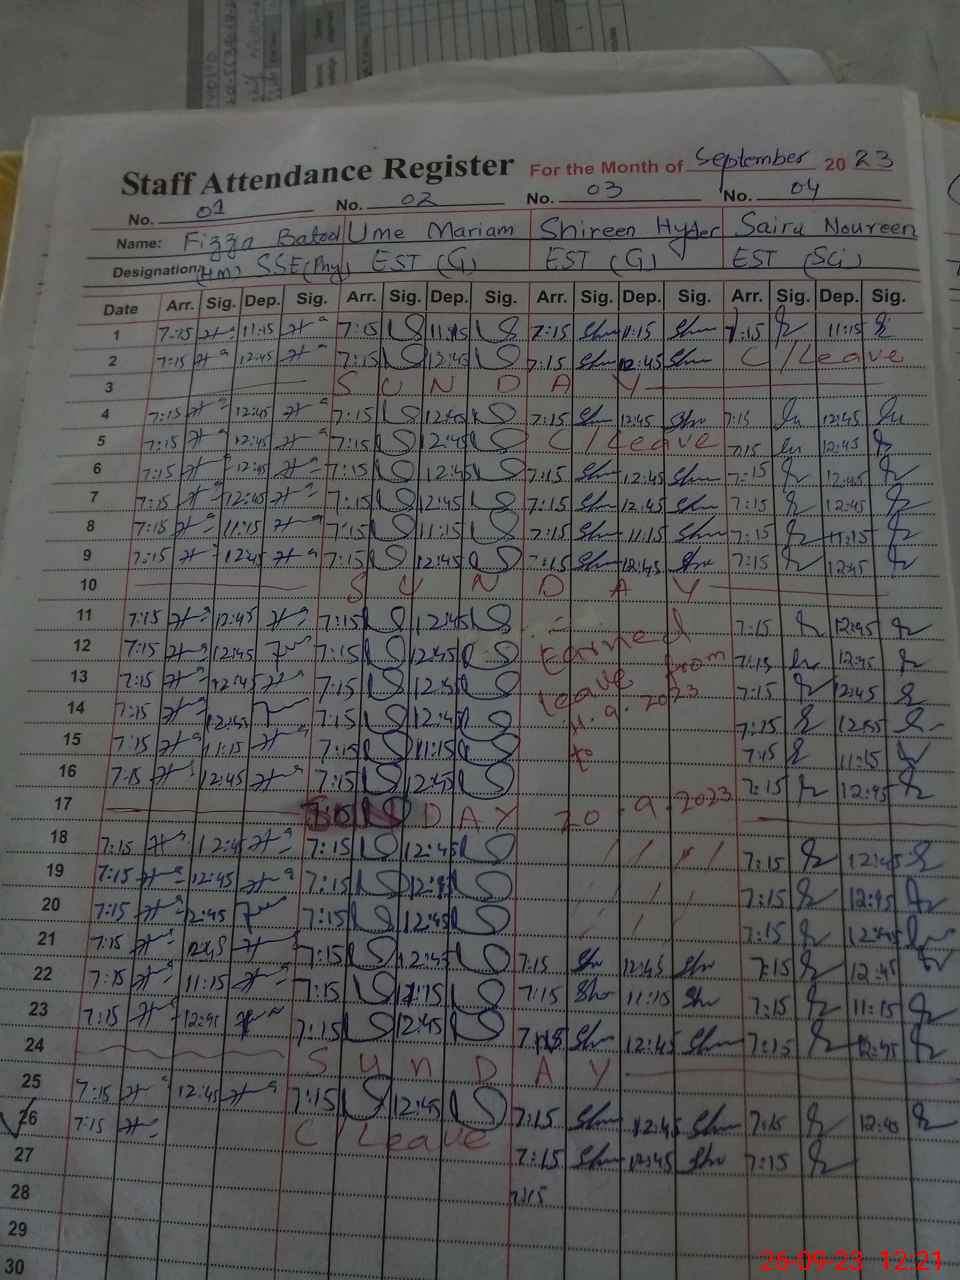 Staff Attendance Register For the Month of September 2023
No. 01 No. 02 No. 03 No. 04
Name: Fizza Batool Ume Mariam Shireen Hyder Saira Noureen
Designation (HM) SSE(Phy) EST (G) EST (G) EST (Sci)
Date Arr. Sig. Dep. Sig. Arr. Sig. Dep. Sig. Arr. Sig. Dep. Sig. Arr. Sig. Dep. Sig.
1 7:15 11:15 7:15 11:15 7:15 Shr 11:15 Shr 7:15 11:15
2 7:15 12:45 7:15 12:45 7:15 Shr 12:45 Shr C/Leave
3 SUNDAY
4 7:15 12:45 7:15 12:45 7:15 Shr 12:45 Shr 7:15 12:45
5 7:15 12:45 7:15 12:45 C/Leave 7:15 12:45
6 7:15 12:45 7:15 12:45 7:15 Shr 12:45 Shr 7:15 12:45
7 7:15 12:45 7:15 12:45 7:15 Shr 12:45 Shr 7:15 12:45
8 7:15 11:15 7:15 11:15 7:15 Shr 11:15 Shr 7:15 11:15
9 7:15 12:45 7:15 12:45 7:15 Shr 12:45 Shr 7:15 12:45
10 SUNDAY
11 7:15 12:45 7:15 12:45 Earned 7:15 12:45
12 7:15 12:45 7:15 12:45 leave from 7:15 12:45
13 7:15 12:45 7:15 12:45 11.9.2023 7:15 12:45
14 7:15 12:45 7:15 12:45 to 7:15 12:45
15 7:15 11:15 7:15 11:15 7:15 11:15
16 7:15 12:45 7:15 12:45 7:15 12:45
17 SUNDAY 20.9.2023
18 7:15 12:45 7:15 12:45 7:15 12:45
19 7:15 12:45 7:15 12:45 7:15 12:45
20 7:15 12:45 7:15 12:45 7:15 12:45
21 7:15 12:45 7:15 12:45 7:15 Shr 12:45 Shr 7:15 12:45
22 7:15 11:15 7:15 11:15 7:15 Shr 11:15 Shr 7:15 11:15
23 7:15 12:45 7:15 12:45 7:15 Shr 12:45 Shr 7:15 12:45
24 SUNDAY
25 7:15 12:45 7:15 12:45 7:15 Shr 12:45 Shr 7:15 12:45
26 7:15 C/Leave 7:15 Shr 12:45 Shr 7:15
27 7:15
28
29
30
26-09-23 12:21